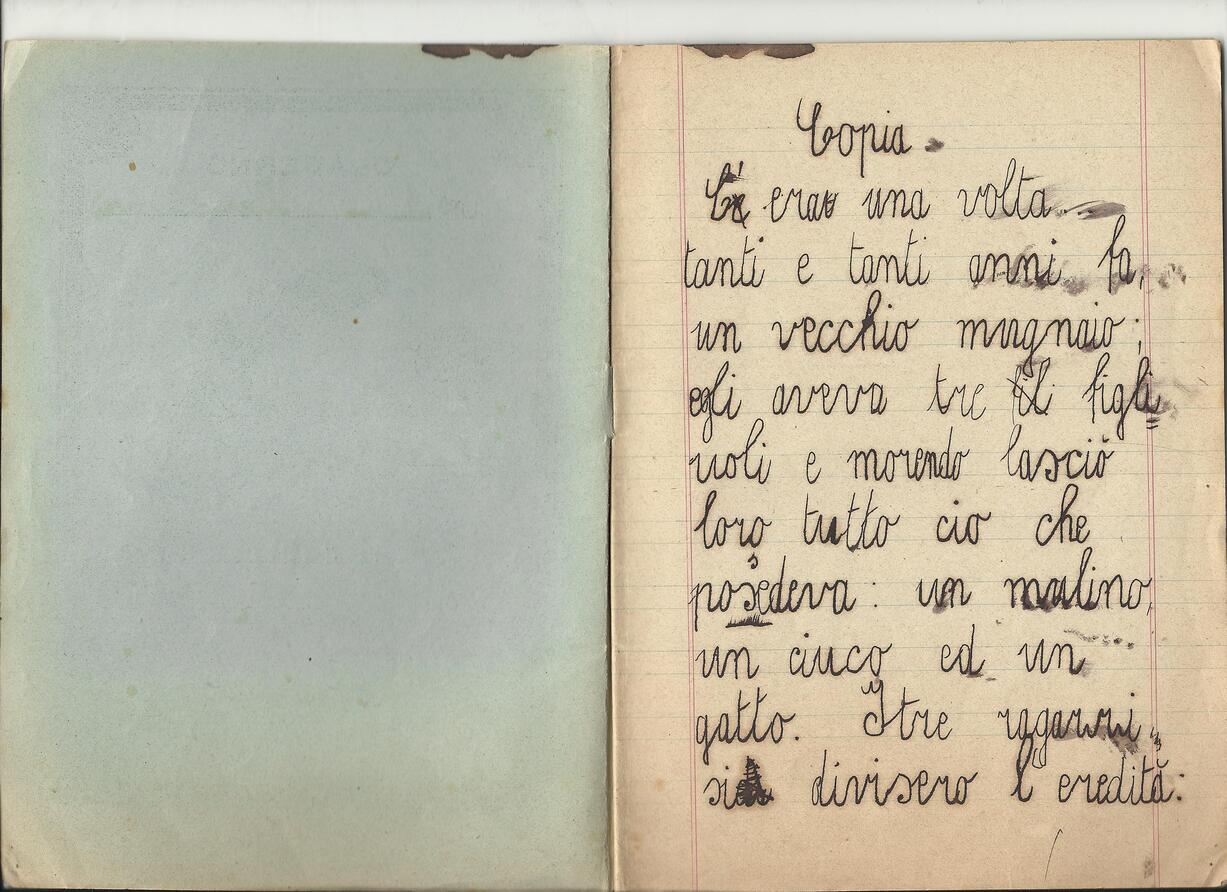 Copia.
C' era una volta
tanti e tanti anni fa,
un vecchio mugnaio;
egli aveva tre figli
uoli e morendo lasciò
loro tutto cio che
possedeva: un mulino,
un ciuco ed un
gatto. I tre ragazzi
si divisero l' eredità: